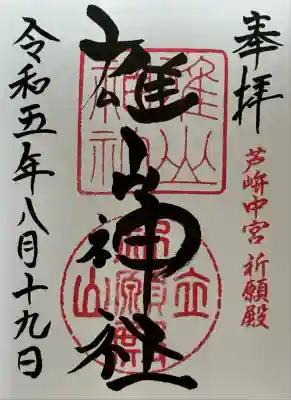 奉拝
芦峅中宮 祈願殿
雄山神社
令和五年八月十九日
雄山神社
立山祈願殿